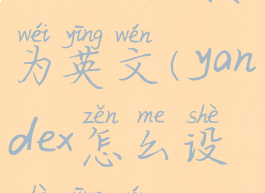 wéi yīng wén
为英文(yan
zěn me shè
dex怎么设